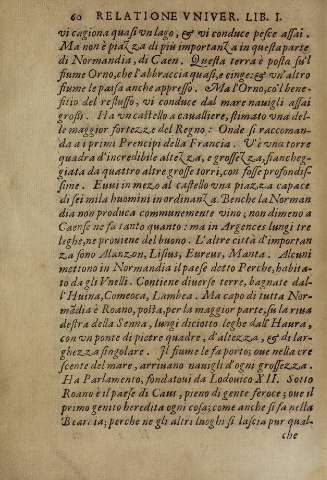 60 RELATIONE VNIVER. LIB. I.
vi cagiona quasi vn lago, & vi conduce pesce assai.
Ma non è piazza di più importanza in questa parte
di Normandia, di Caen. Questa terra è posta su'l
fiume Orno, che l'abbraccia quasi, e cinge: & vn'altro
fiume le passa anche appresso. Ma l'Orno, co'l bene-
fitio del reflusso, vi conduce dal mare nauigli assai
grossi. Ha vn castello a caualliere, stimato vna del-
le maggior fortezze del Regno: Onde si raccoman-
da a i primi Prencipi della Francia. V'è vna torre
quadra d'incredibile altezza, e grossezza, fiancheg-
giata da quattro altre grosse torri, con fosse profondis-
sime. Euui in mezo al castello vna piazza capace
di sei mila huomini in ordinanza. Benche la Norman
dia non produca communemente vino; non dimeno a
Caense ne fa tanto quanto: ma in Argences lungi tre
leghe, ne prouiene del buono. L'altre città d'importan
za sono Alanzon, Lisius, Eureus, Manta. Alcuni
mettono in Normandia il paese detto Perche, habita-
to da gli Vnelli. Contiene diuerse terre, bagnate dal-
l'Huina, Comeoca, Lambea. Ma capo di tutta Nor-
mādia è Roano, posta, per la maggior parte, su la riua
destra della Senna, lungi diciotto leghe dall'Haura,
con vn ponte di pietre quadre, d'altezza, & di lar-
ghezza singolare. Il fiume le fa porto; oue nella cre
scente del mare, arriuano nauigli d'ogni grossezza.
Ha Parlamento, fondatoui da Lodouico XII. Sotto
Roano è il paese di Caus, pieno di gente feroce; oue il
primo genito heredita ogni cosa; come anche si fa nella
Bearnia; perche ne gli altri luoghi si lascia pur qual-
che